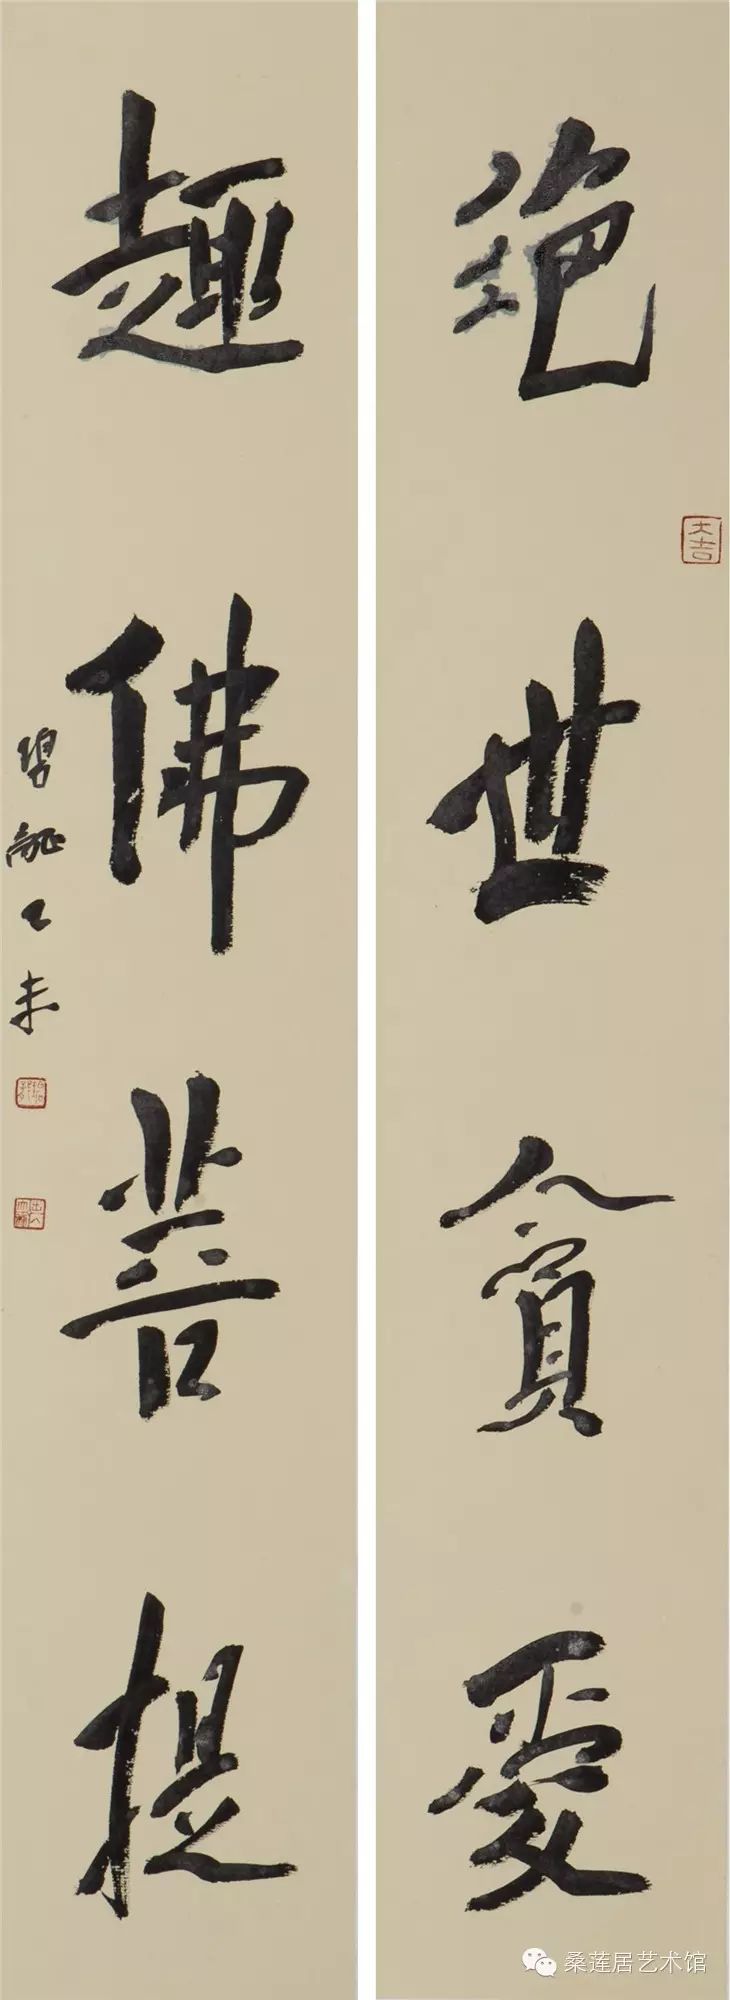 绝世贪爱
大吉
趣佛菩提
乙未
桑莲居艺术馆